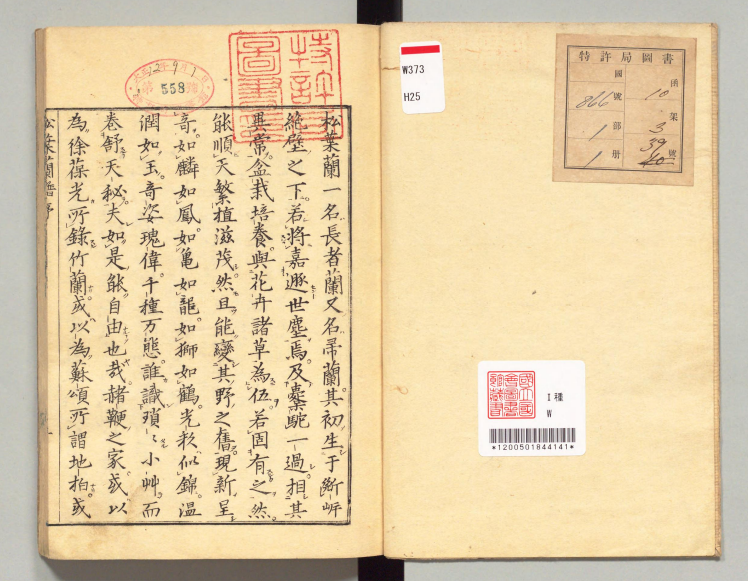 特許局圖書
函 10
架 3
39 號
40
國 866 號
1 部
1 册
W373
H25
国立国会図書館蔵書
I種
W
*1200501844141*
特許局圖書
558
松葉蘭一名長者蘭又名帚蘭其初生于斷岸
絶壁之下若將嘉遯世塵焉及橐駝一過相其
異常盆栽培養與花卉諸草為伍若固有之然
能順天繁植滋茂然且能變其野之舊現新呈
奇如麟如鳳如亀如龍如獅如鶴光彩似錦温
潤如玉奇姿瑰偉千種万態誰識瑣〻小艸而
卷舒天秘夫如是能自由也哉赭鞭之家或以
為徐葆光所錄竹蘭或以為蘇頌所謂地柏或
松葉蘭譜序